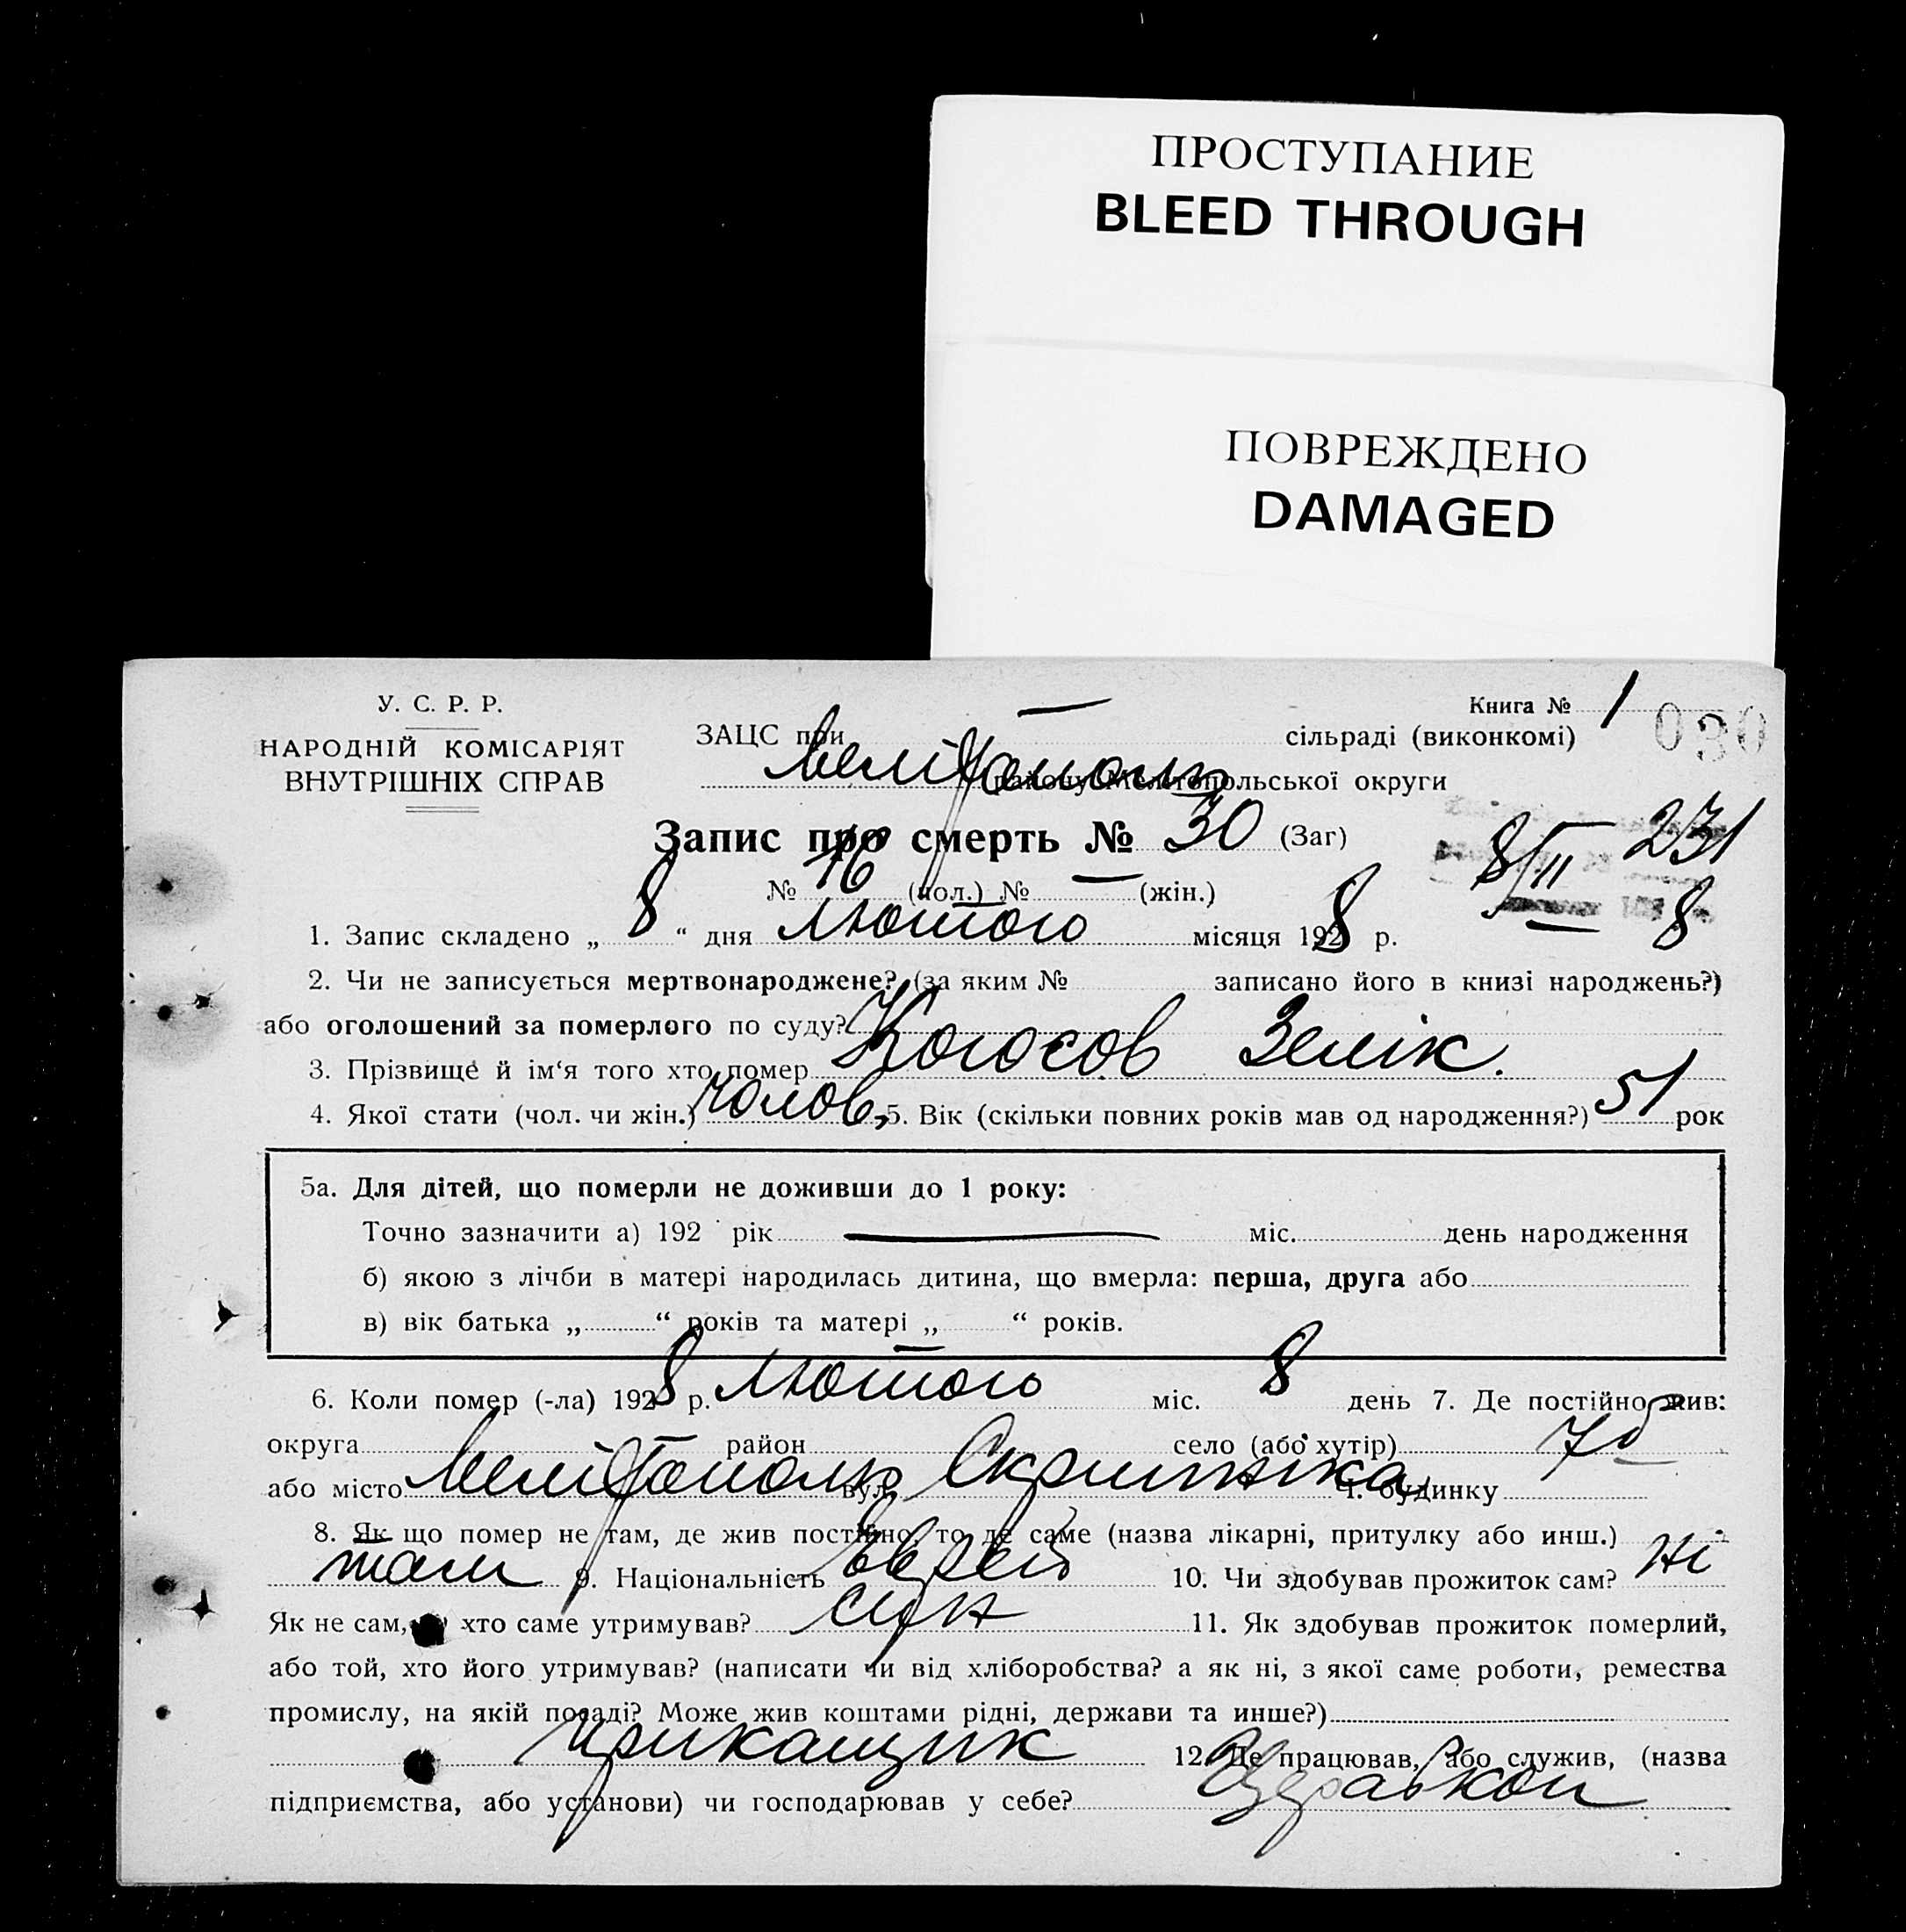 ПРОСТУПАНИЕ
BLEED THROUGH
ПОВРЕЖДЕНО
DAMAGED
У. С. Р. Р.
НАРОДНІЙ КОМІСАРІЯТ
ВНУТРІШНІХ СПРАВ
Книга № 1
030
ЗАЦС при — сільраді (виконкомі)
Мелітополь району Мелітопольської округи
Запис про смерть № 30 (Заг)
8/II 231
8
№ 16 (чол.) № — (жін.)
1. Запис складено „ 8 “ дня Лютого місяця 1928 р.
2. Чи не записується мертвонароджене? (за яким № записано його в книзі народжень?)
або оголошений за померлого по суду?
3. Прізвище й ім‘я того хто помер Когосов Зелік.
4. Якої стати (чол. чи жін.) чолов, 5. Вік (скільки повних років мав од народження?) 51 рок
5а. Для дітей, що померли не доживши до 1 року:
Точно зазначити а) 192 рік — міс. день народження
б) якою з лічби в матері народилась дитина, що вмерла: перша, друга або
в) вік батька „ “ років та матері „ “ років.
6. Коли помер (-ла) 1928 р. Лютого міс. 8 день 7. Де постійно жив:
округа район село (або хутір)
або місто Мелітополь вул. ч. будинку
8. Як що помер не там, де жив постійно, то де саме (назва лікарні, притулку або инш.)
там 9. Національність Єврей 10. Чи здобував прожиток сам? ні
Як не сам, хто саме утримував? син 11. Як здобував прожиток померлий,
або той, хто його утримував? (написати чи від хліборобства? а як ні, з якої саме роботи, ремества
промислу, на якій посаді? Може жив коштами рідні, держави та инше?)
прикащик 12. Де працював, або служив, (назва
підприємства, або установи) чи господарював у себе?